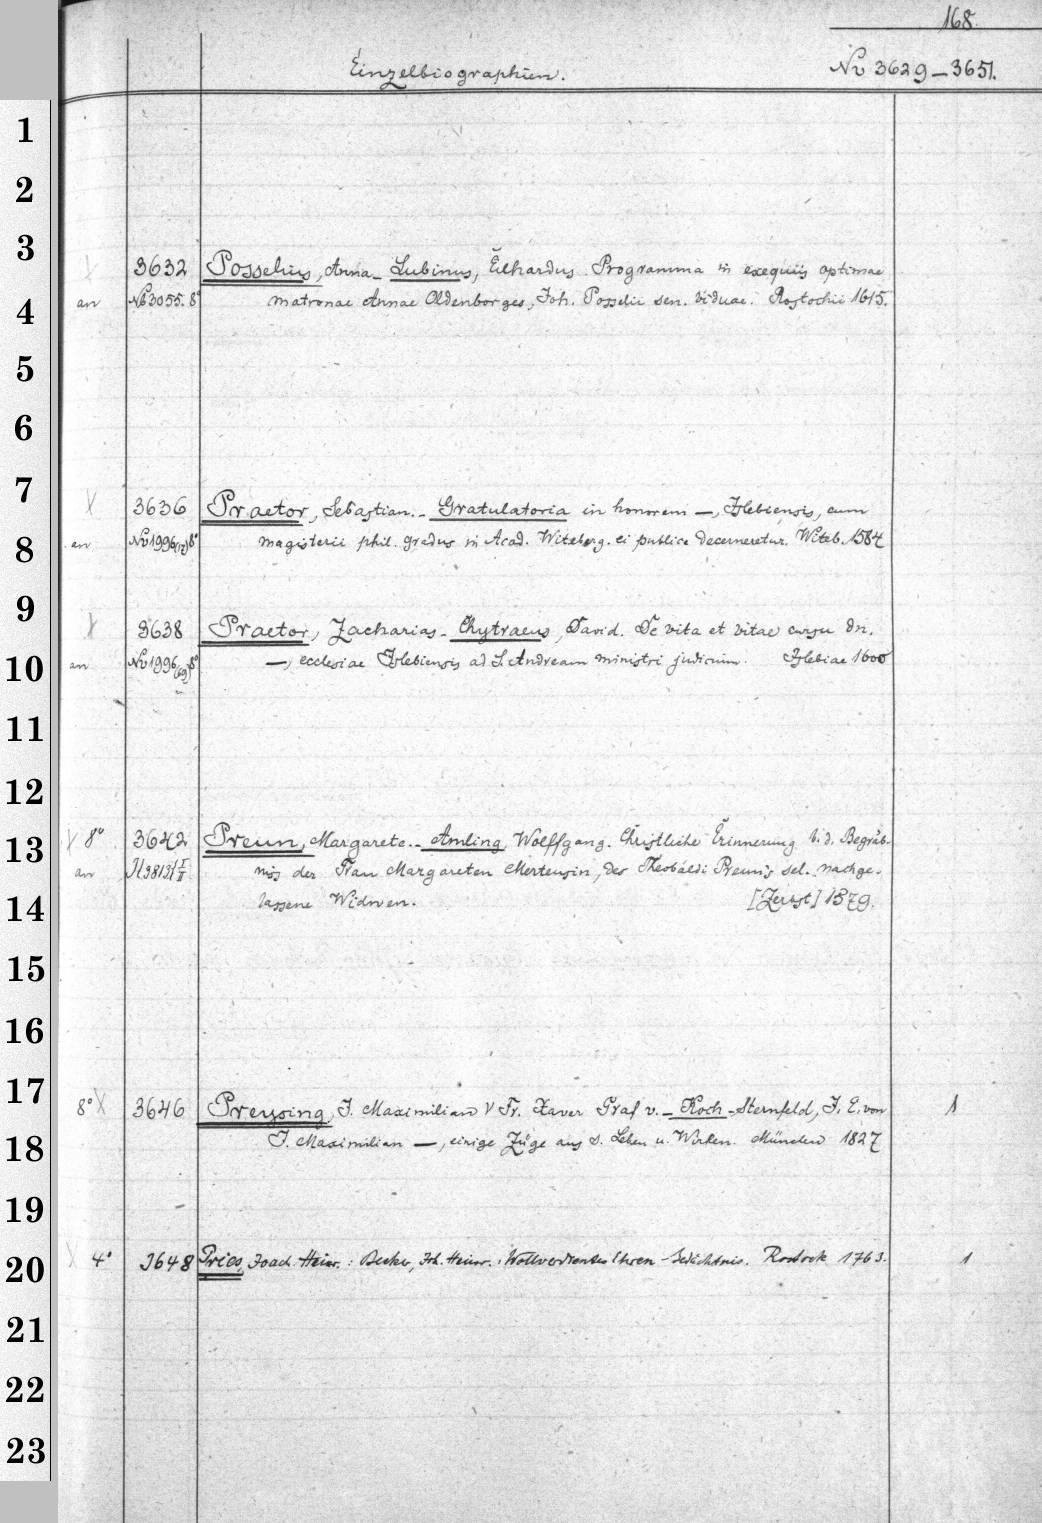 168.
Einzelbiographien. No 3629-3651.
3632 Posselius, Anna - Lubinus, Eilhardus. Programma in exequiis optimae
an No 3055. 8° matronae Annae Oldenborges, Joh. Posselii sen. viduae. Rostochii 1615.
3636 Praetor, Sebastian. - Gratulatoria in honorem —, Islebiensis, cum
an No 1996(17) 8° magisterii phil. gradus in Acad. Witeberg. ei publice decerneretur. Witeb. 1584
3638 Praetor, Zacharias - Chytraeus, David. De vita et vitae cursu dn.
an No 1996(69) 8° —, ecclesiae Islebiensis ad S. Andream ministri judicium. Islebiae 1600
8° 3642 Preun, Margarete. - Amling, Wolffgang. Christliche Erinnerung b. d. Begräb-
an nis der Frau Margareten Mertensin, des Theobaldi Preun's sel. nachge-
lassene Widwen. [Zerbst] 1579.
8° X 3646 Preysing, J. Maximilian V Fr. Xaver Graf v. - Koch-Sternfeld, J. E. von 1
J. Maximilian —, einige Züge aus s. Leben u. Wirken. München 1827
4° 3648 Pries, Joach. Heinr.: Becker, Joh. Heinr.: Wollverdientes Ehren-Gedächtnis. Rostock 1763. 1
1
2
3
4
5
6
7
8
9
10
11
12
13
14
15
16
17
18
19
20
21
22
23